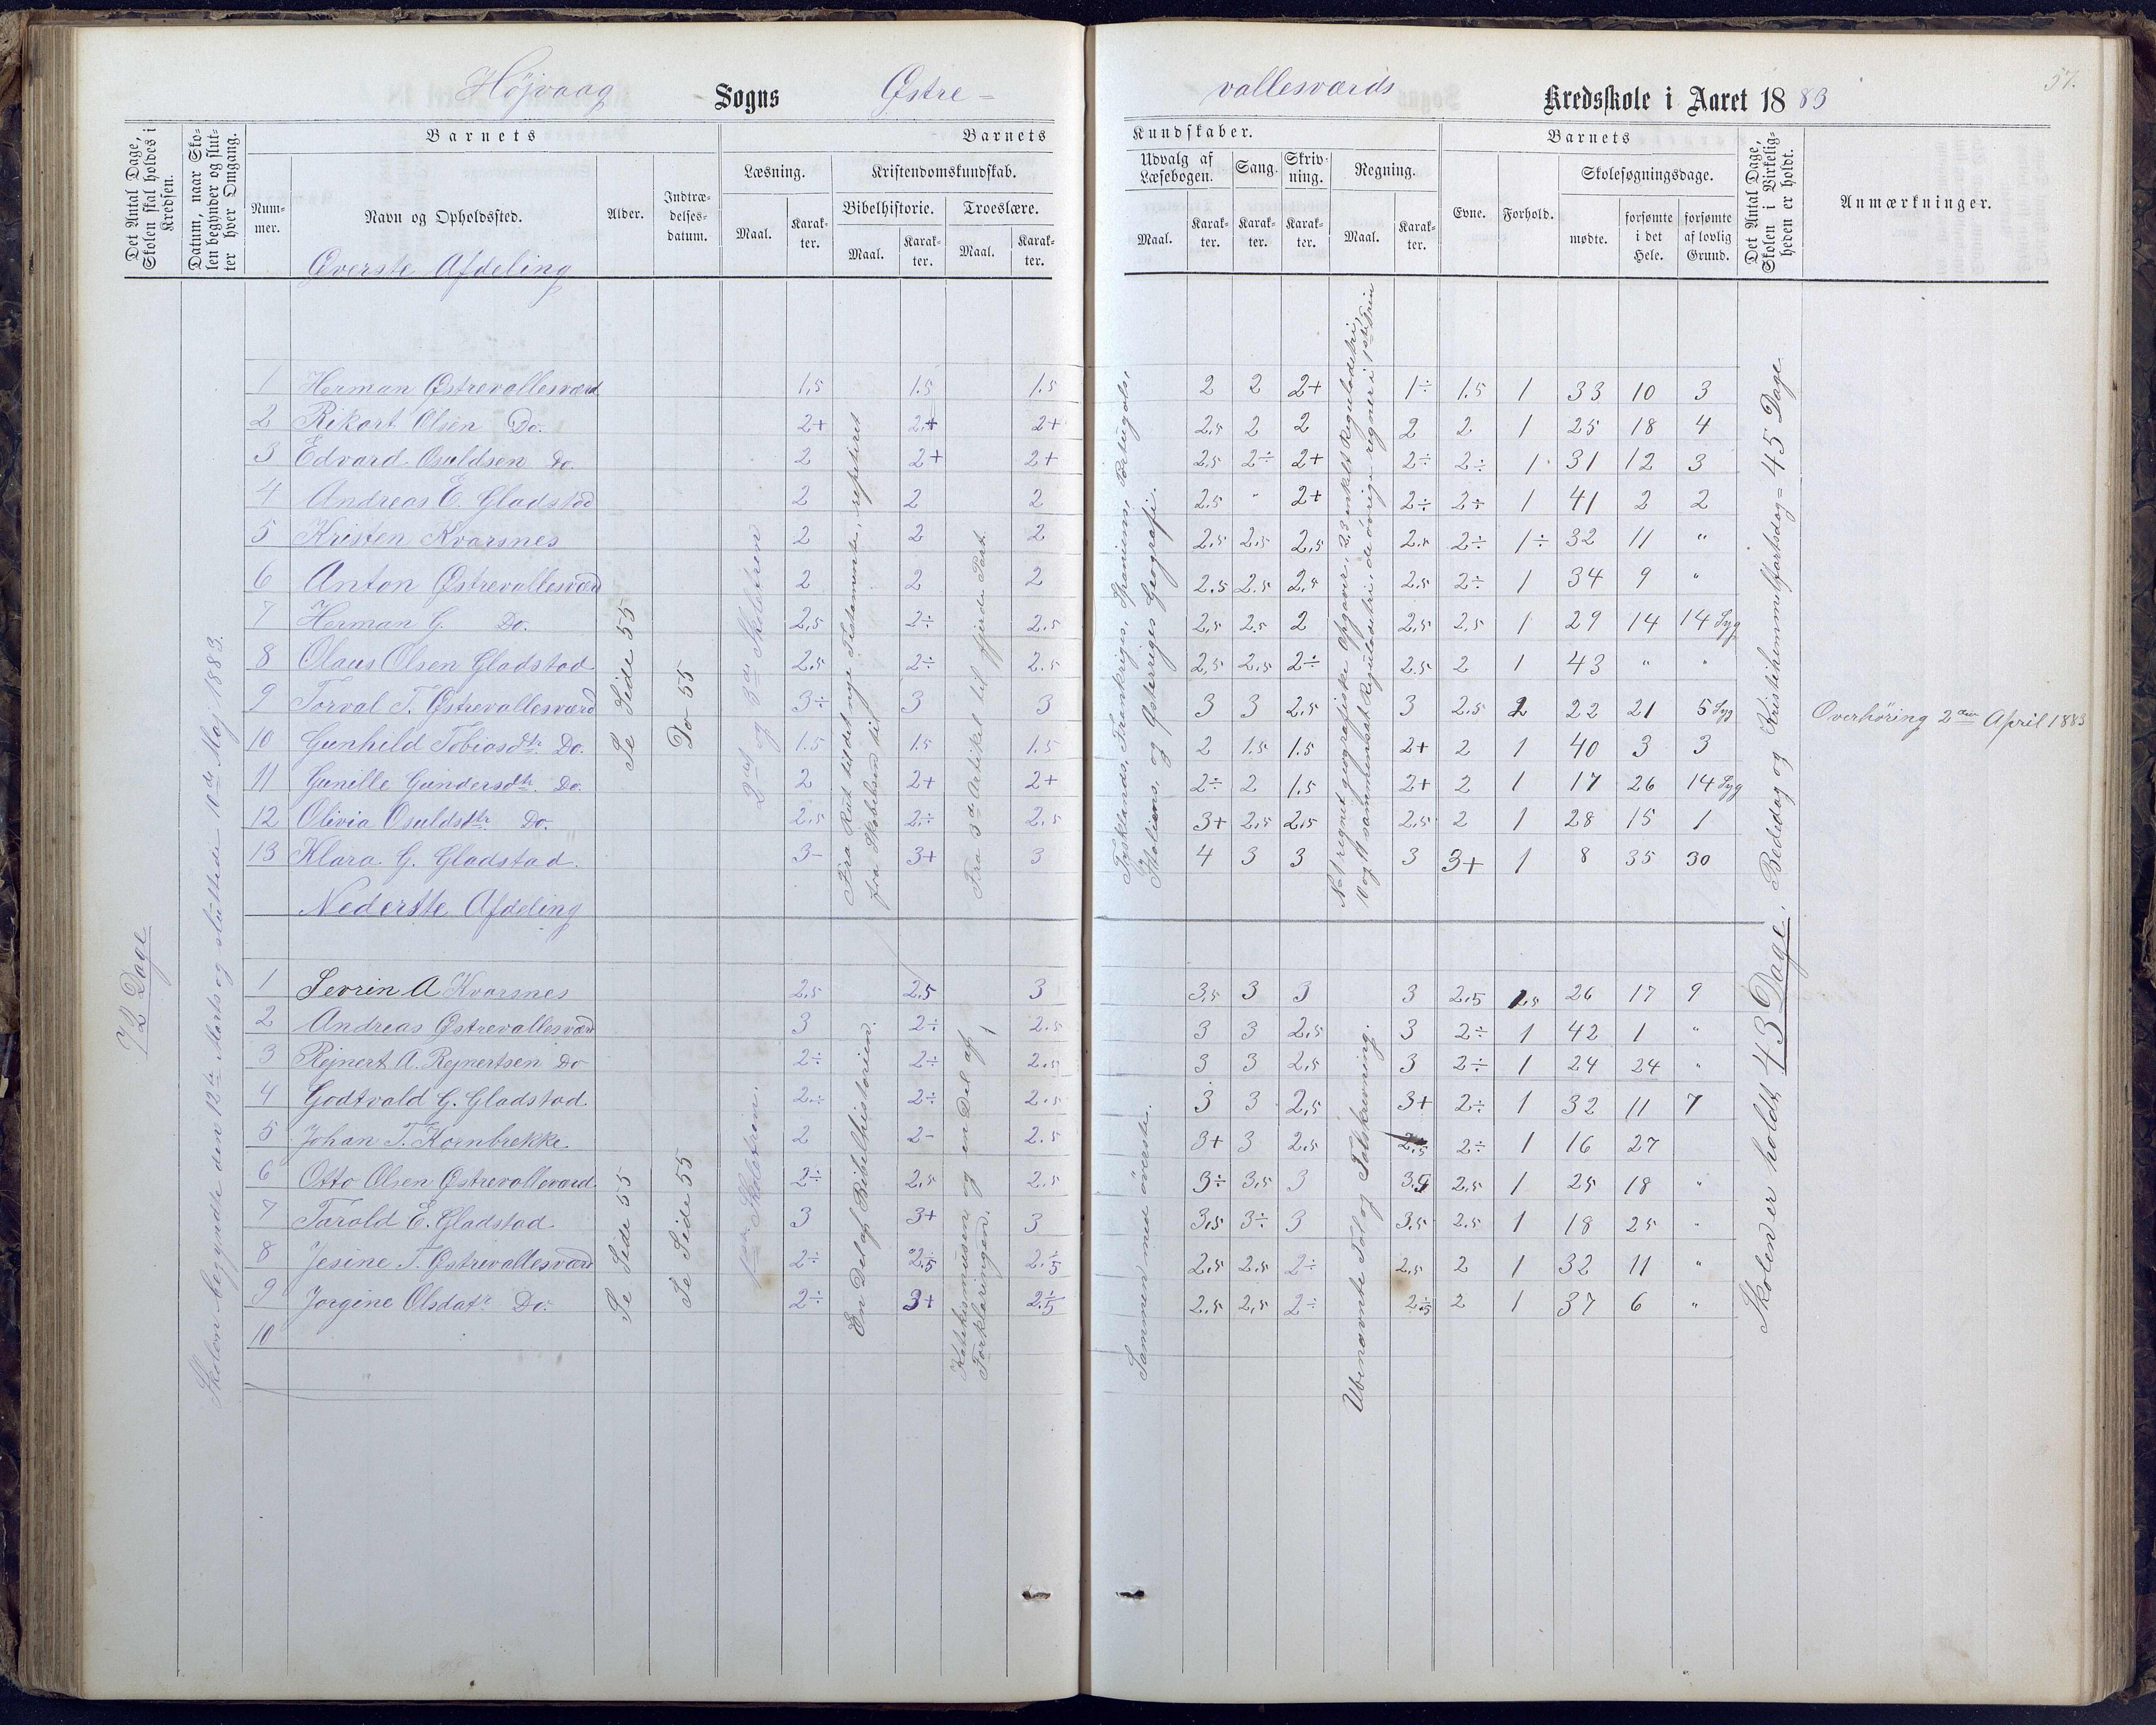 Højvaag Sogns Østre- vallesværds Kredsskole i Aaret 1883
57.
Det Antal Dage, Skolen skal holdes i Kredsen.
Datum, naar Skolen begynder og slutter hver Omgang.
Barnets
Nummer.
Navn og Opholdssted.
Alder.
Indtrædelsesdatum.
Barnets Kundskaber.
Læsning. Maal. Karakter.
Kristendomskundskab.
Bibelhistorie. Maal. Karakter.
Troeslære. Maal. Karakter.
Udvalg af Læsebogen. Maal. Karakter.
Sang. Karakter.
Skrivning. Karakter.
Regning. Maal. Karakter.
Barnets
Evne. Forhold.
Skolesøgningsdage.
mødte. forsømte i det Hele. forsømte af lovlig Grund.
Det Antal Dage, Skolen i Virkeligheden er holdt.
Anmærkninger.
Øverste Afdeling
1 Herman Østrevallesværd 1,5 1.5 1.5 2 2 2+ 1÷ 1.5 1 33 10 3
2 Rikart Olsen Do. 2+ 2+ 2+ 2,5 2 2 2 2 1 25 18 4
3 Edvard Osuldsen Do. 2 2+ 2+ 2,5 2÷ 2+ 2÷ 2÷ 1 31 12 3
4 Andreas E. Gladstad 2 2 2 2.5 " 2+ 2÷ 2÷ 1 41 2 2
5 Kristen Kvarsnes 2 2 2 2,5 2,5 2,5 2.5 2÷ 1÷ 32 11 "
6 Anton Østrevallesværd 2 2 2 2.5 2.5 2,5 2,5 2÷ 1 34 9 "
7 Herman G. Do. 2,5 2÷ 2.5 2,5 2.5 2 2,5 2.5 1 29 14 14 Syg
8 Olaus Olsen Gladstad 2.5 2÷ 2.5 2,5 2,5 2÷ 2.5 2 1 43 " "
9 Torval T. Østrevallesværd 3÷ 3 3 3 3 2,5 3 2.5 2 22 21 5 Syg
10 Gunhild Tobiasdtr Do. 1.5 1.5 1.5 2 1.5 1.5 2+ 2 1 40 3 3
11 Gunille Gundersdtr. Do. 2 2+ 2+ 2÷ 2 1.5 2+ 2 1 17 26 14 Syg
12 Olivia Osuldsdtr Do. 2.5 2÷ 2.5 3+ 2,5 2,5 2,5 2 1 28 15 1
13 Klara G. Gladstad. 3- 3+ 3 4 3 3 3 3+ 1 8 35 30
Nederste Afdeling
1 Sevrin A Kvarsnes 2,5 2,5 3 3,5 3 3 3 2.5 1,5 26 17 9
2 Andreas Østrevallesværd 3 2÷ 2.5 3 3 2.5 3 2÷ 1 42 1 "
3 Rejnert A. Rejnertsen Do 2÷ 2÷ 2.5 3 3 2,5 3 2÷ 1 24 24 "
4 Godtvald G. Gladstad. 2÷ 2÷ 2.5 3 3 2,5 3+ 2÷ 1 32 11 7
5 Johan T. Kornbrekke. 2 2- 2.5 3+ 3 2,5 2,5 2÷ 1 16 27
6 Otto Olsen Østrevalleværd 2÷ 2,5 2.5 3÷ 3,5 3 3,5 2,5 1 25 18 "
7 Tarald E. Gladstad. 3 3+ 3 3,5 3÷ 3 3,5 2.5 1 18 25 "
8 Jesine T. Østrevallesværd 2÷ 2,5 2.5 2,5 2,5 2÷ 2,5 2 1 32 11 "
9 Jorgine Olsdatr Do. 2÷ 3+ 2,5 2.5 2,5 2÷ 2,5 2 1 37 6 "
10
72 Dage
Skolen begyndte den 12te Marts og sluttede 10de Maj 1883.
Se Side 55
Do 55
2det og 3die Skoletrin
Fra Rut til det nye Testamente, repeteret fra Skabelsen til
Fra 3die Artikel til fjerde Part.
Tysklands, Frankriges, Spaniens, Portugals, Italiens, og Østerriges Geografi.
No 1 regnet geografiske Opgaver, 2,3 enkelt Reguladetri, 10 og 11 sammensat Reguladetri, de øvrige regner i 1ste Trin
Se Side 55
Se Side 55
1ste Skoletrin.
En Del af Bibelhistorien.
Katekismusen og en Del af Forklaringen.
Sammen med øverste.
Ubenævnte Tal og Talskrivning.
Skolen er holdt 43 Dage. Bededag og Kristihemmelfartsdag = 45 Dage
Overhøring 2den April 1883